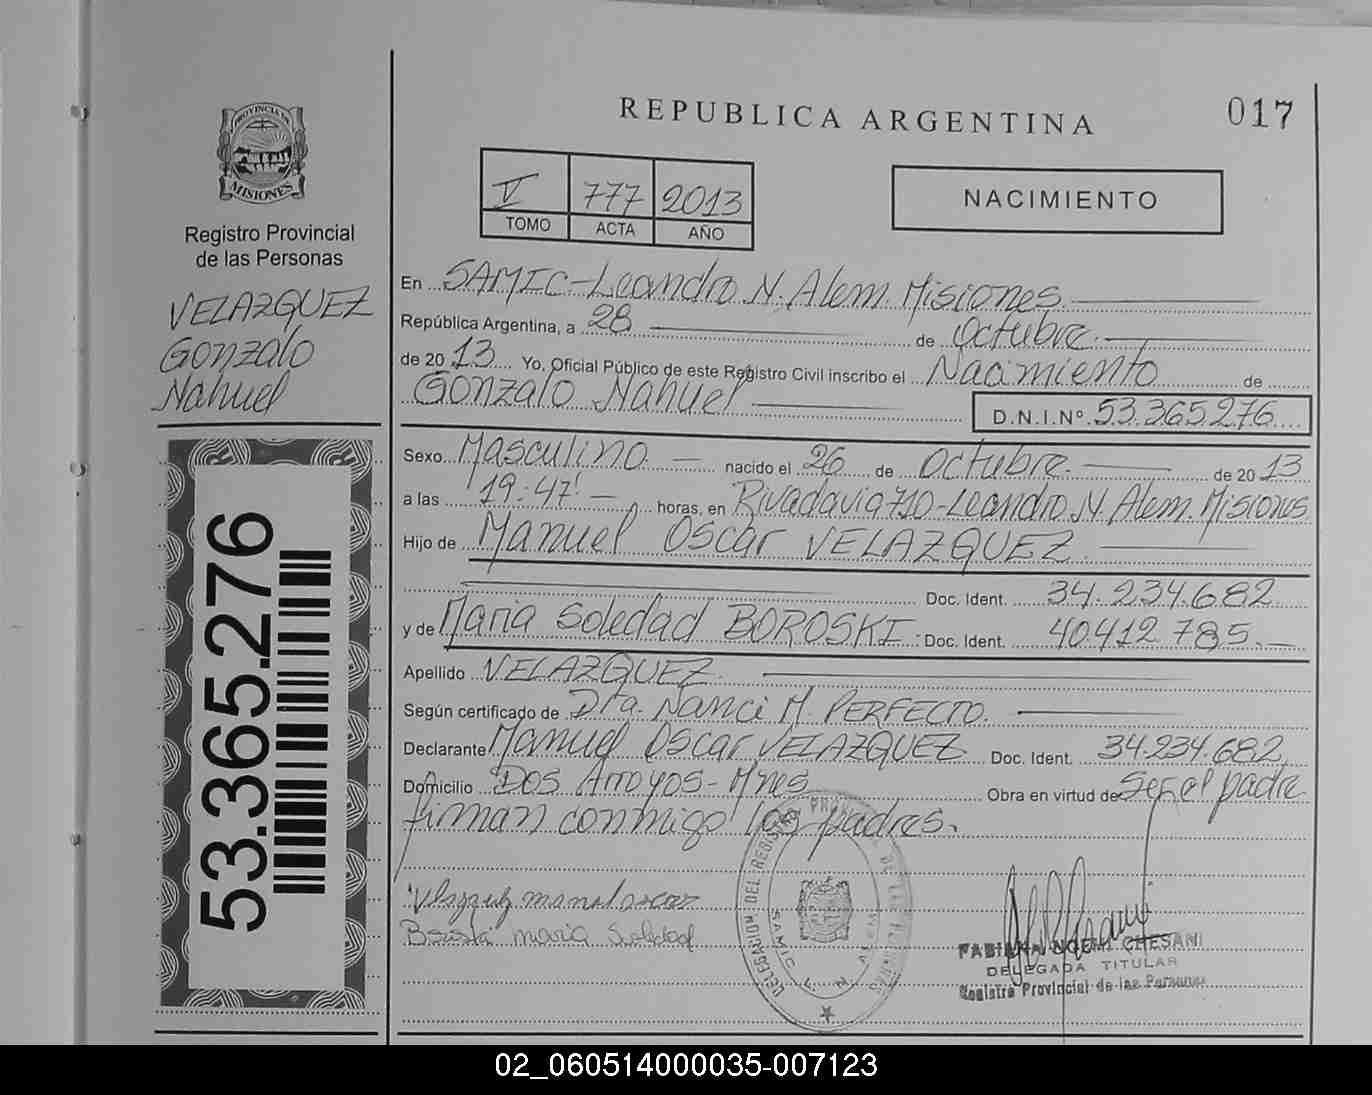 REPUBLICA ARGENTINA
017
PROVINCIA DE
MISIONES
Registro Provincial
de las Personas
VELAZQUEZ
Gonzalo
Nahuel
53.365.276
V 777 2013
TOMO ACTA AÑO
NACIMIENTO
En SAMIC-Leandro N. Alem. Misiones
República Argentina, a 28 de Octubre.
de 20 13 Yo, Oficial Público de este Registro Civil inscribo el Nacimiento de
Gonzalo Nahuel D.N.I.Nº 53.365.276
Sexo Masculino nacido el 26 de Octubre. de 20 13
a las 19:47 horas, en Rivadavia 710-Leandro N Alem. Misiones
Hijo de Manuel Oscar VELAZQUEZ
Doc. Ident. 34.234.682
y de Maria Soledad BOROSKI Doc. Ident. 40.412.785.
Apellido VELAZQUEZ
Según certificado de Dra. Nanci M. PERFECTO.
Declarante Manuel Oscar VELAZQUEZ Doc. Ident. 34.234.682
Domicilio Dos Arroyos-Mnes Obra en virtud de Ser el padre
firman conmigo los padres.
maria Soledad
DELEGACION DEL REGISTRO
SAMIC L. N. ALEM
FABIANA NOEMI CHESANI
DELEGADA TITULAR
Registro Provincial de las Personas
02_060514000035-007123